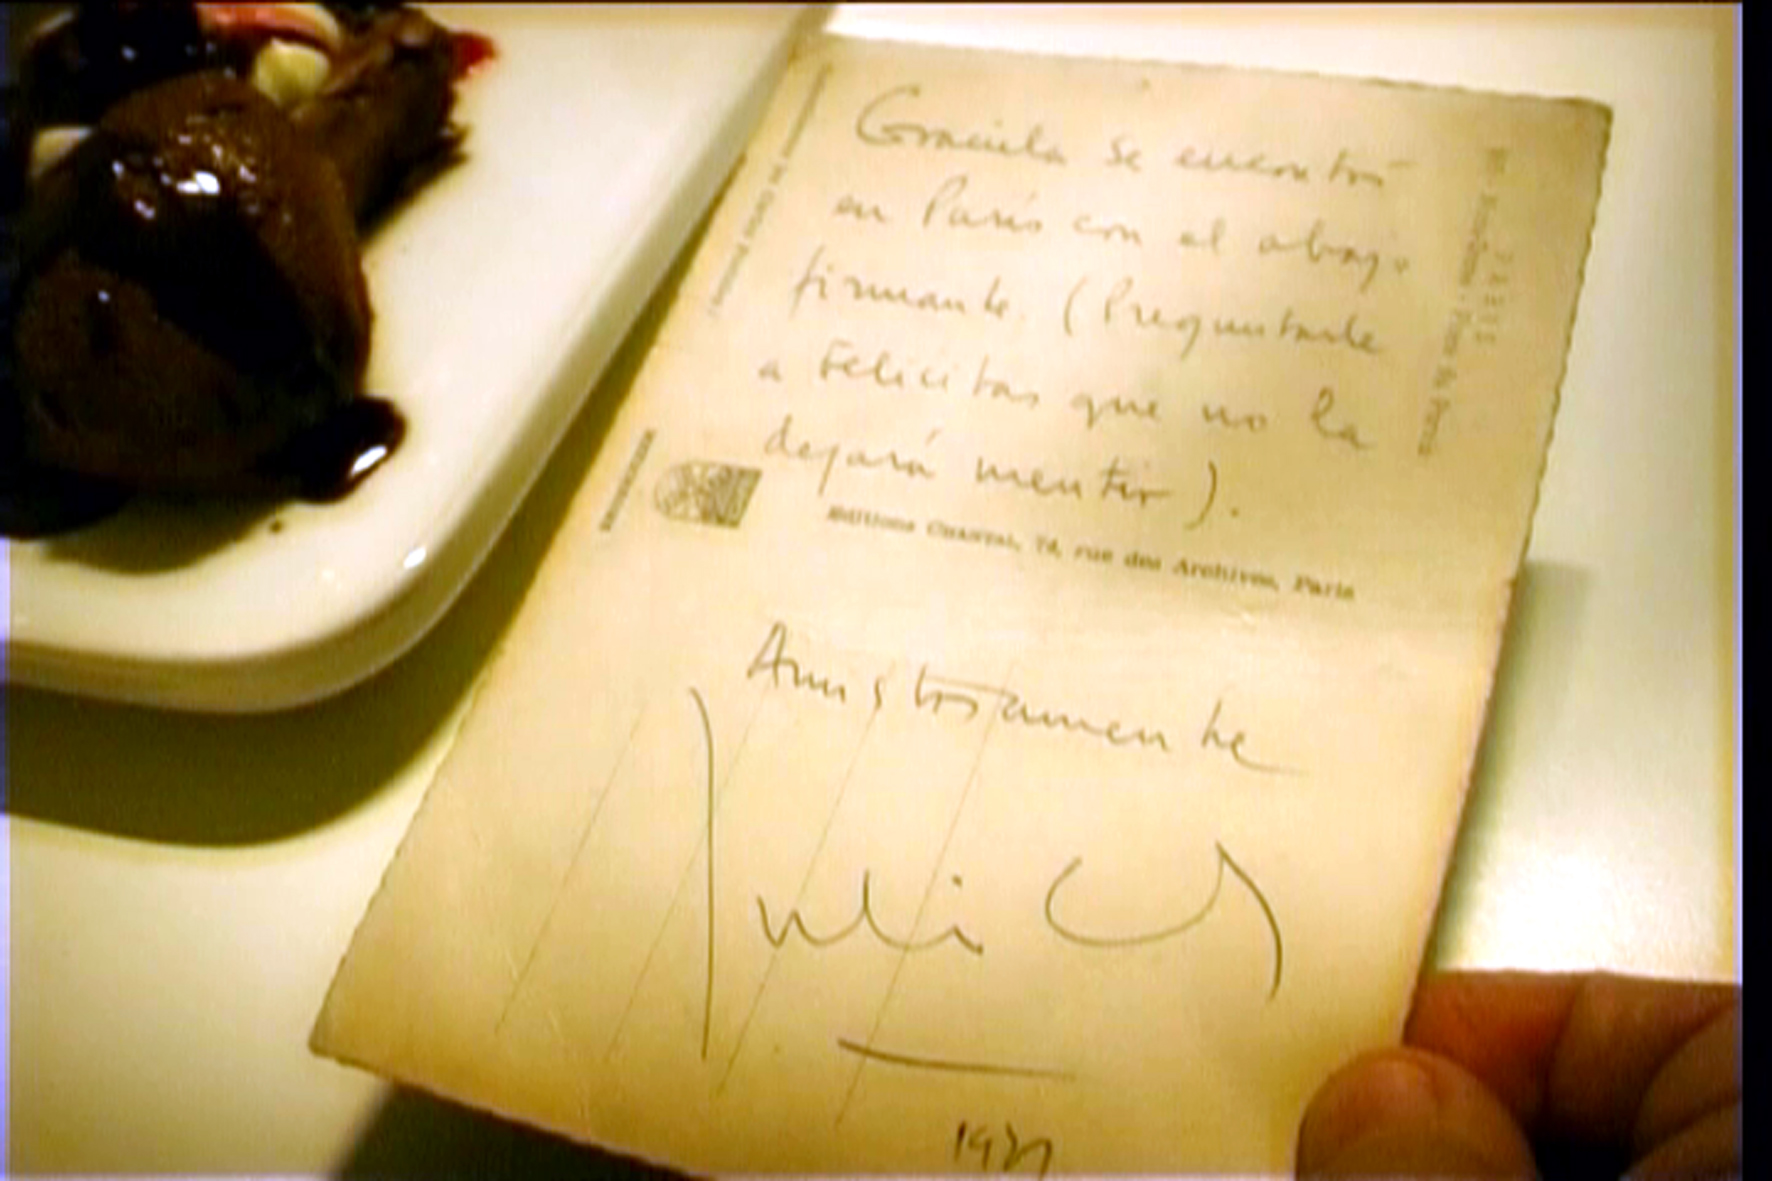 Graciela se encontró
en París con el abajo
firmante. (Preguntarle
a Felicitas que no la
dejará mentir).
Editions Chantal, 74, rue des Archives, Paris
Amistosamente
Julio